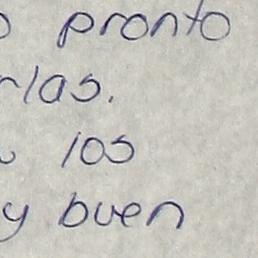 o pronto
rlas.
los
y buen